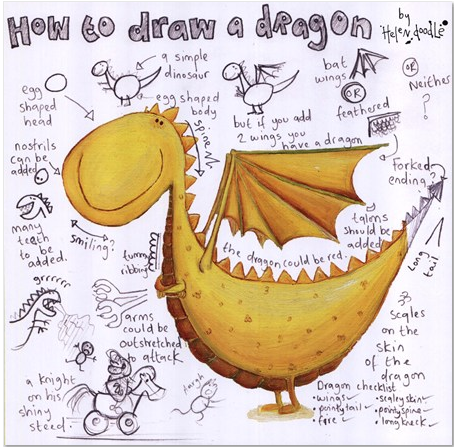 How to draw a dragon
by
Helen doodle
a simple
dinosaur
egg
shaped
head
egg shaped
body
spine
but if you add
2 wings you
have a dragon
bat
wings
OR
feathered
OR
Neither
?
nostrils
can be
added
many
teeth
to be
added.
smiling?
Forked
ending?
talons
should be
added
the dragon could be red.
long
tail
tummy
ribbing
grrrrrr
arms
could be
outstretched
to attack.
scales
on the
skin
of the
dragon
a knight
on his
shiny
steed.
Aargh
Dragon checklist
• wings ✓
• pointy tail ✓
• fire ✓
• scaley skin ✓
• pointy spine ✓
• long neck ✓